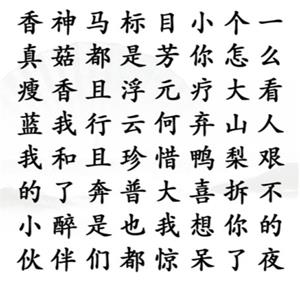 香神马标目小个一
真菇都是芳你怎么
瘦香且浮元疗大看
蓝我行云何弃山人
我和且珍惜鸭梨艰
的了奔普大喜拆不
小醉是也我想你的
伙伴们都惊呆了夜